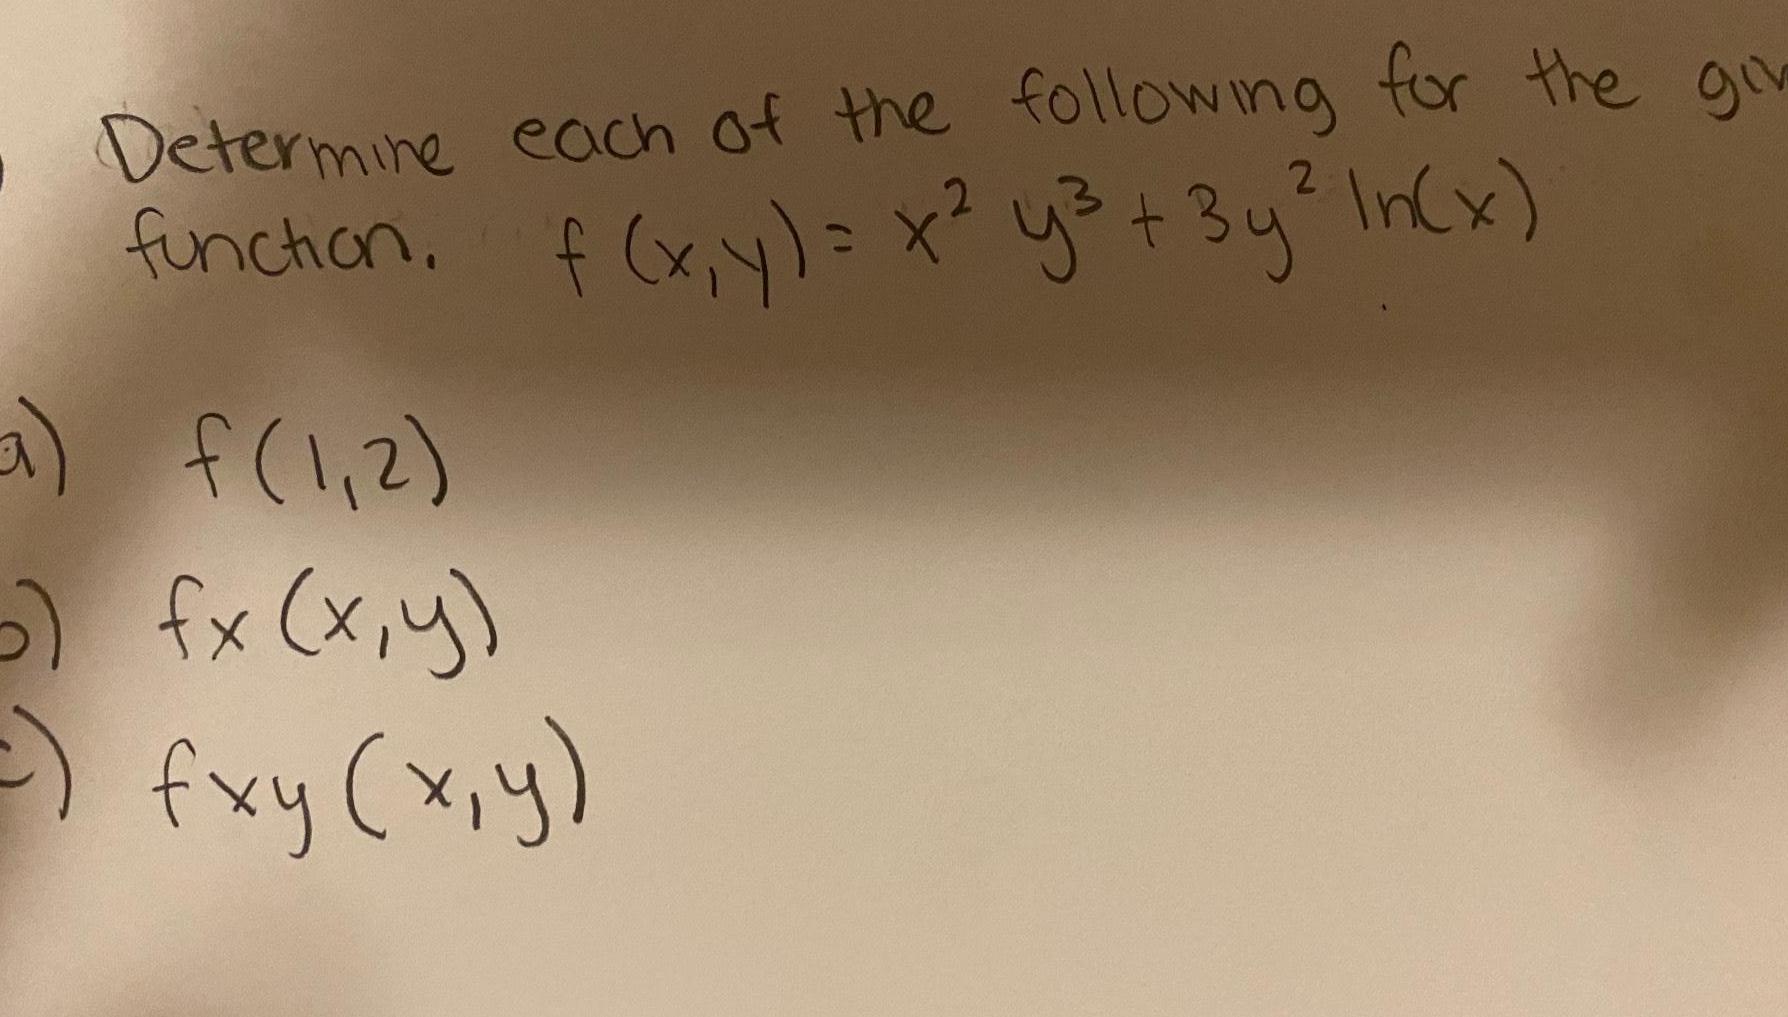 Determine each of the following for the
function. f(x,y) = x² y³ + 3y² ln(x)
a) f(1,2)
b) fx(x,y)
c) fxy(x,y)